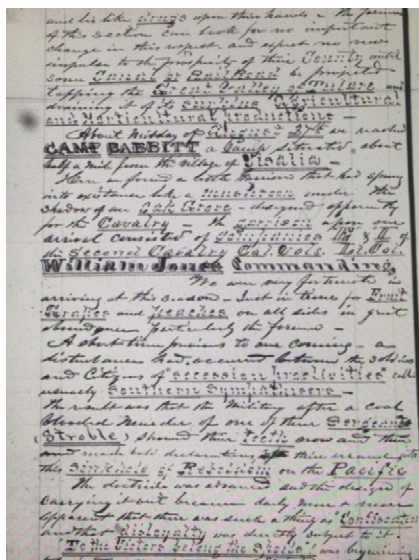 and lie like drugs upon their hands — the farmer
of this section can look for no important
change in this aspect and expect no new
impulse to the prosperity of their County until
some Canal or Rail Road be projected
tapping the Great Valley of Tulare and
draining it of its surplus Agricultural
and Horticultural productions —
About Midday of August 27th we reached
CAMP BABBITT a Camp situated about
half a mile from the village of Visalia —
Here we found a little Garrison that had sprung
into existence like a mushroom under the
shadow of an Oak Grove — designed apparently
for the Cavalry — the garrison upon our
arrival consisted of Companies & I of
the Second Cavalry Cal. Vols. Lt. Col.
William Jones Commanding
We were very fortunate in
arriving at this season — Just in time for Fruit
Grapes and Peaches on all sides in great
abundance Particularly the former —
A short time previous to our coming — a
disturbance had occurred between the soldiers
and Citizens of "secession proclivities" called
usually Southern Sympathisers —
The result was that the Military after a cool
blooded Murder of one of their Sergeants
(Stroble) showed their teeth now and then
and made bold declarations of their crusade into
this Sinkhole of Rebeldom on the Pacific
The doctrine was advanced and the design of
carrying it out became daily more & more
apparent that there was such a thing as Confiscation
and that disloyalty was directly subject to it —
"To the Victors belong the Spoils" was beginning